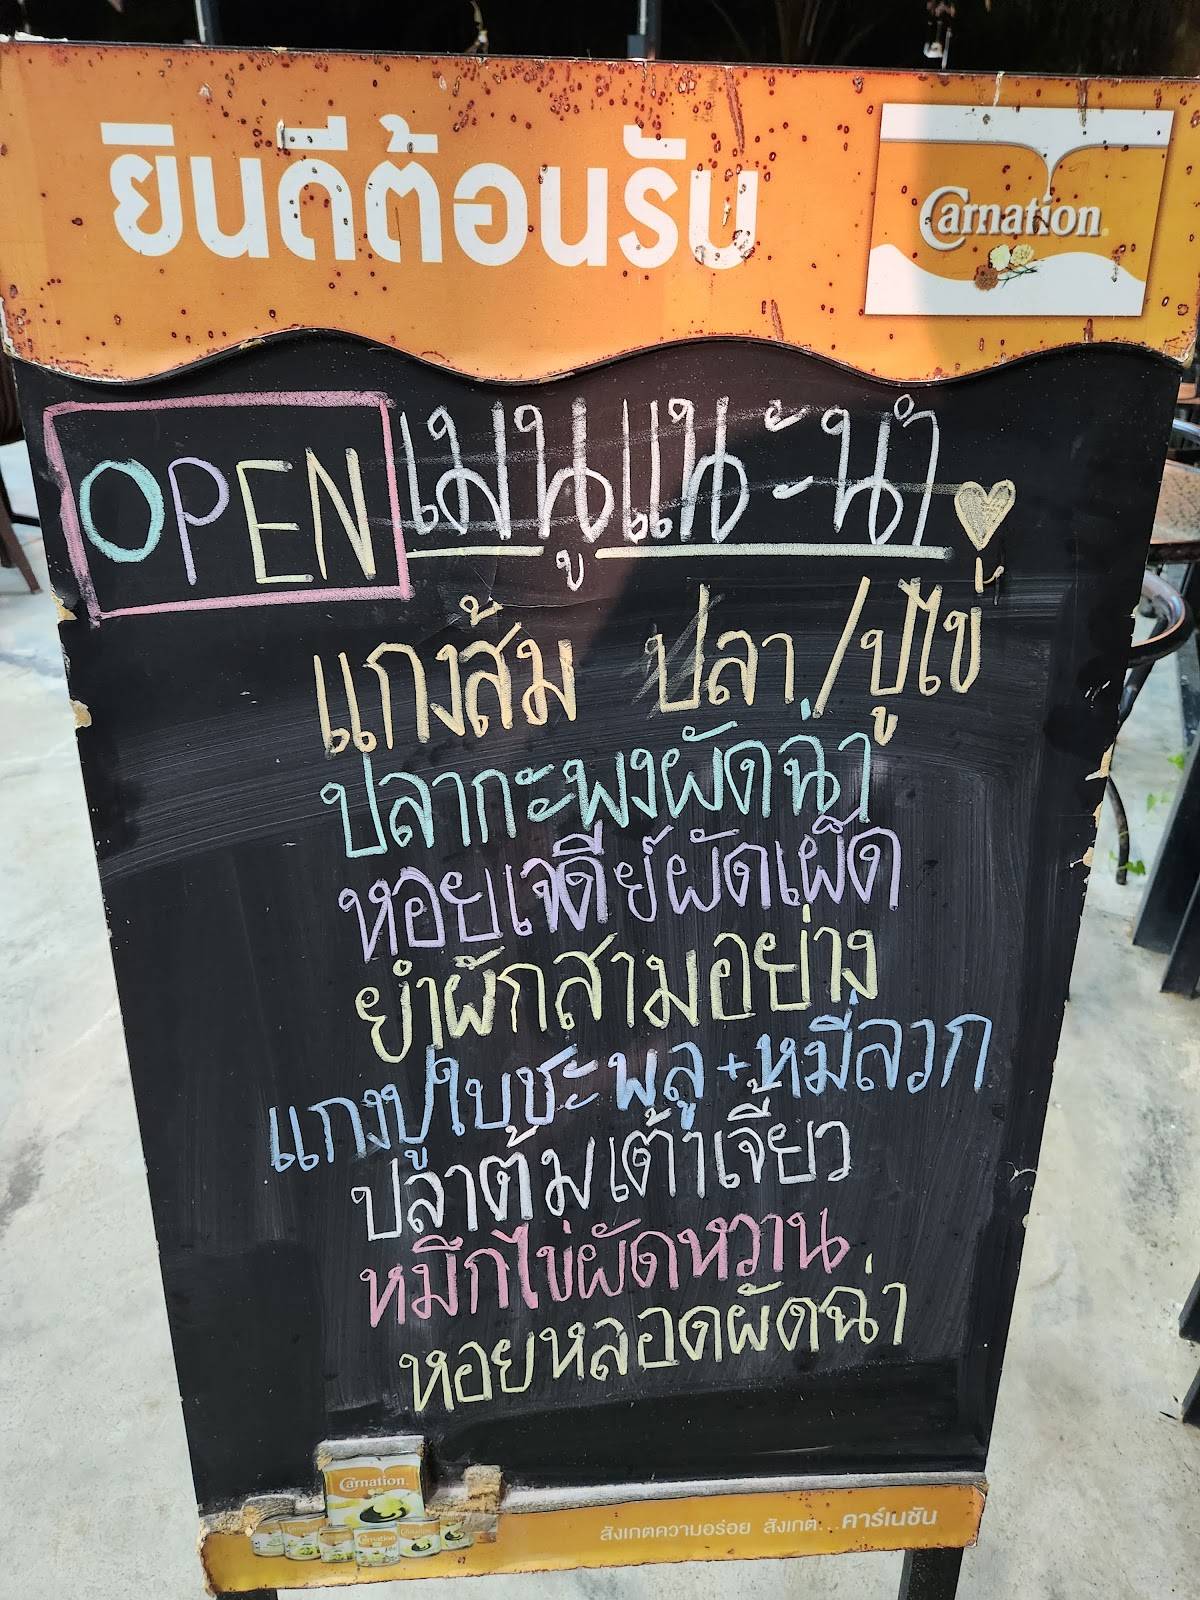 ยินดีต้อนรับ
Carnation
OPEN เมนูแนะนำ
แกงส้ม ปลา/ปูไข่
ปลากะพงผัดฉ่า
หอยเจดีย์ผัดเผ็ด
ยำผักสามอย่าง
แกงปูใบชะพลู+หมี่ลวก
ปลาต้มเต้าเจี้ยว
หมึกไข่ผัดหวาน
หอยหลอดผัดฉ่า
Carnation
Carnation
สังเกตความอร่อย สังเกต...คาร์เนชัน